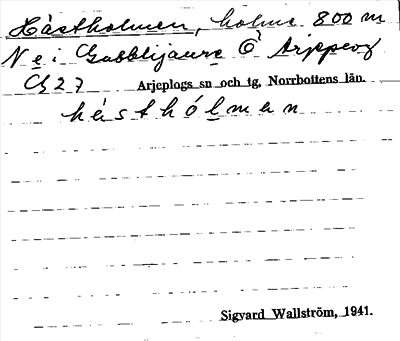 Hästholmen, holme 800 m
N e i Gubblijaure Ö Arjeplog
Cg 27 Arjeplogs sn och tg, Norrbottens län.
hästhólmen
Sigvard Wallström, 1941.